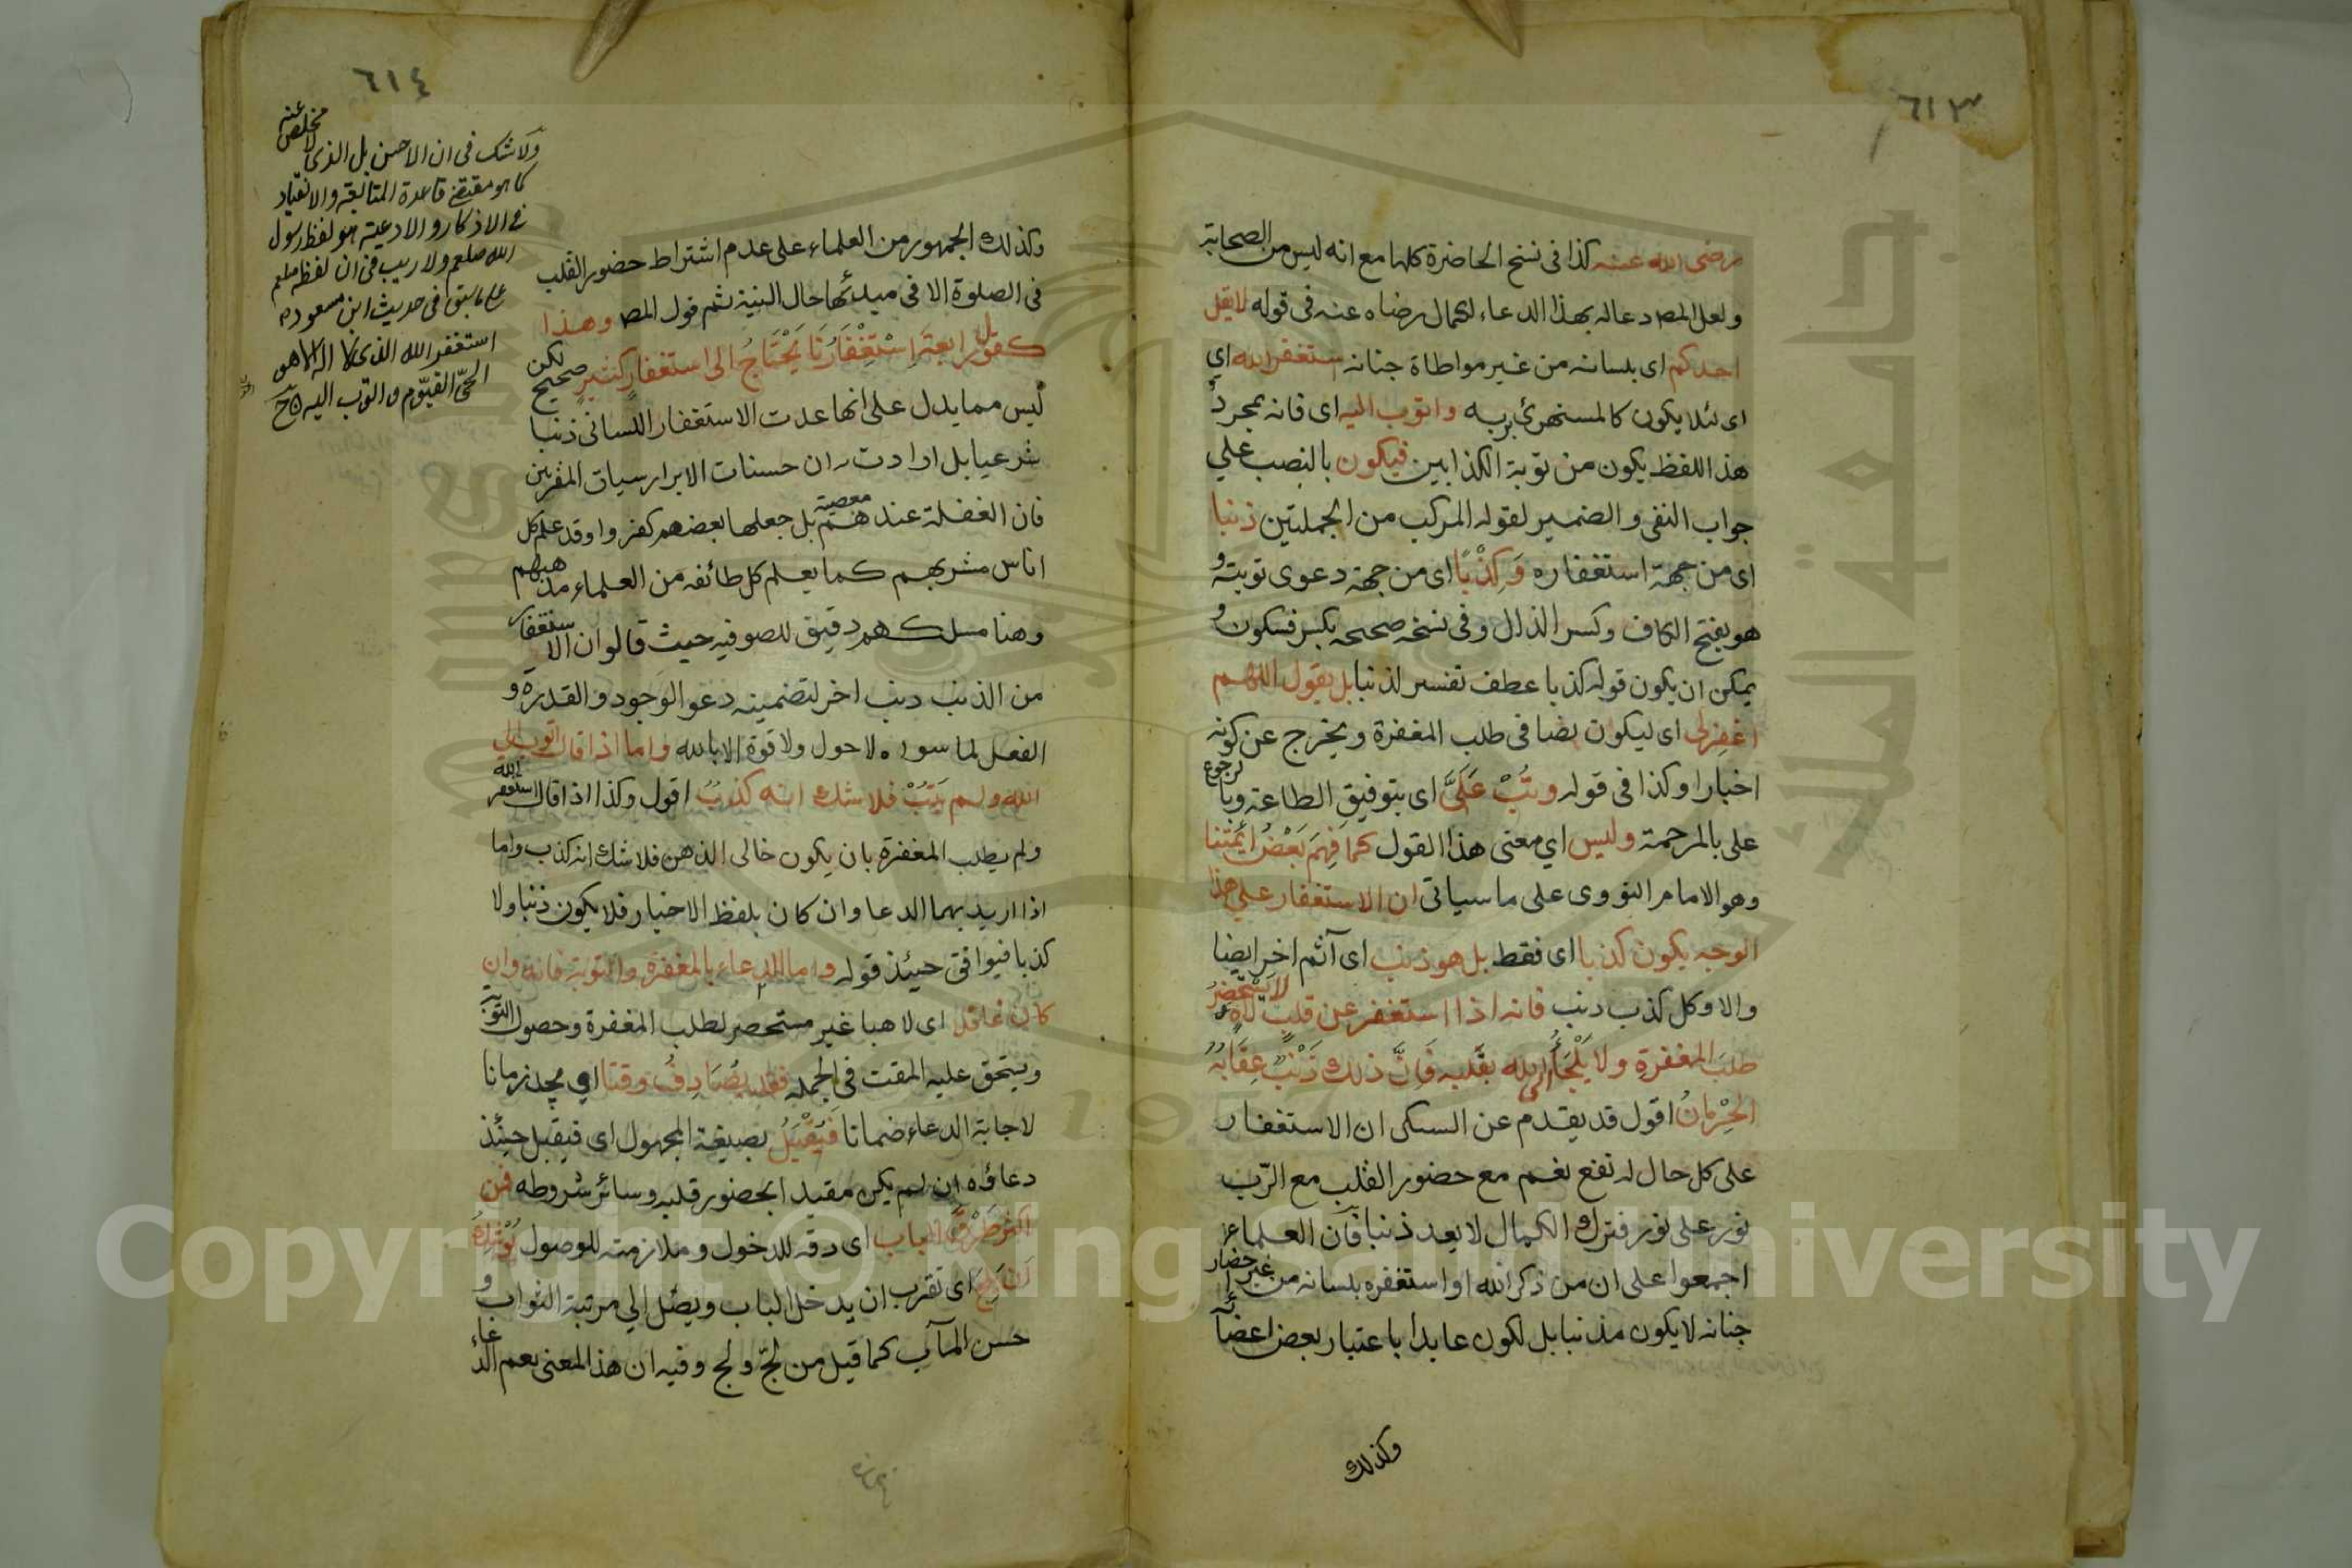 ٦١٣
رضى الله عنه كذا فى نسخ الحاضرة كلها مع انه ليس من الصحابة
ولعل المص دعا له بهذا الدعاء لكمال رضاه عنه فى قوله لا يقل
احدكم اى بلسانه من غير مواطاة جنانه استغفر الله اي
اى لئلا يكون كالمستهزئ بربه واتوب اليه اى فانه بمجرد
هذا اللفظ يكون من توبة الكذابين فيكون بالنصب علي
جواب النفى والضمير لقوله المركب من الجملتين ذنبا
اى من جهة استغفاره وَكِذْبًا اى من جهة دعوى توبته و
هو بفتح الكاف وكسر الذال وفى نسخه صحيحه بكسر فسكون و
يمكن ان يكون قوله كذبا عطف تفسير لذنبا بل يقول اللهم
اغفرلى اى ليكون نصا فى طلب المغفرة ويخرج عن كونه
اخبارا وكذا فى قوله وتُبْ عَلَىَّ اى بتوفيق الطاعة وبالرجوع
على بالمرحمة وليس اي معنى هذا القول كما فَهِمَ بَعْضُ ائمتنا
وهو الامام النووى على ما سياتى ان الاستغفار علي هذا
الوجه يكون كذبا اى فقط بل هو ذنب اى آثم اخر ايضا
والا وكل كذب ذنب فانه اذا استغفر عن قلبٍ لاهٍ لا يَسْتَحْضِرُ
طلبَ المغفرةِ ولا يَلْجَأُ الى الله بقلبه فَاِنَّ ذلك ذَنْبٌ عِقَابُهُ
الحِرْمانُ اقول قد يقدم عن السبكى ان الاستغفار
على كل حال له نفع نعم مع حضور القلب مع الرّب
نور على نور فترك الكمال لا يعد ذنبا فان العلماء
اجمعوا على ان من ذكر الله او استغفره بلسانه من غير احضار
جنانه لا يكون مذنبا بل لكون عابدا باعتبار بعض اعضاآئه
وكذلك
٦١٤
وكذلك الجمهور من العلماء على عدم اشتراط حضور القلب
فى الصلوة الا فى مبدئها حال النية ثم قول المص وهذا
كقول رابعة اِسْتِغْفَارُنَا يَحْتَاجُ الى استغفارٍ كثيرٍ صحيح لكن
ليس مما يدل على انها عدت الاستغفار اللسانى ذنبا
شرعيا بل ارادت ان حسنات الابرار سيات المقربين
فان الغفلة عندهم معصية بل جعلها بعضهم كفرا وقد علم كل
اناس مشربهم كما يعلم كل طائفه من العلماء مذهبهم
وهنا مسلك هم دقيق للصوفيه حيث قالوا ان الاستغفار
من الذنب ذنب اخر لتضمينه دعو الوجود والقدرة و
الفعل لما سواه لا حول ولا قوة الا بالله واما اذا قال اتوب الي
الله ولم يَتُبْ فلا شك انه كذبٌ اقول وكذا اذا قال استغفر الله
ولم يطلب المغفرة بان يكون خالى الذهن فلا شك انه كذب واما
اذا اريد بهما الدعا وان كان بلفظ الاخبار فلا يكون ذنبا ولا
كذبا فيوافق حينئذ قوله واما الدعاء بالمغفرة والتوبة فانه وان
كان غافلا اى لاهيا غير مستحضر لطلب المغفرة وحصول التوبة
ويستحق عليه المقت فى الجمله فقد يُصَادِفُ وقتا اي يجد زمانا
لاجابة الدعاء ضمانا فَيُقْبَلُ بصيغة المجهول اى فيقبل حينئذ
دعاؤه ان لم يكن مقيدا بحضور قلبه وسائر شروطه فمن
اكثر طَرْقَ الباب اى دقه للدخول وملازمته للوصول يُوْشِكُ
اَنْ يَلِجَ اى تقرب ان يدخل الباب ويصل الي مرتبة الثواب و
حسن المآب كما قيل من لجّ ولج وفيه ان هذا المعنى يعم الدعاء
ولا شك فى ان الاحسن بل الذى لا مخلص عنه
كما هو مقتضى قاعدة المتابعة والانقياد
فى الاذكار والادعية هو لفظ رسول
الله صلعم ولا ريب فى ان لفظه صلعم
على ما سبق فى حديث ابن مسعود رم
استغفر الله الذى لا اله الا هو
الحىّ القيّوم واتوب اليه
Copyright © King Saud University
جامعة الملك سعود
1957